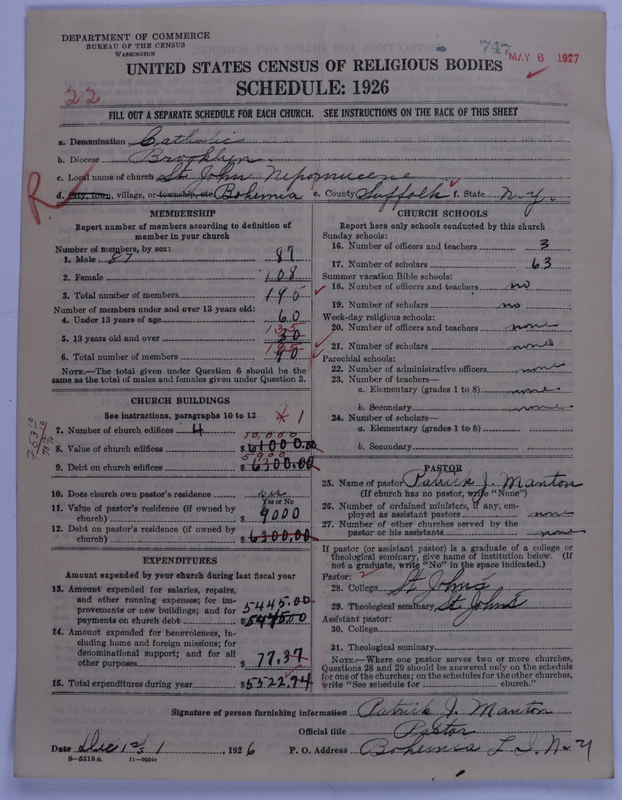 DEPARTMENT OF COMMERCE
BUREAU OF THE CENSUS
WASHINGTON
747
MAY 6 1927
UNITED STATES CENSUS OF RELIGIOUS BODIES
SCHEDULE: 1926
22
FILL OUT A SEPARATE SCHEDULE FOR EACH CHURCH. SEE INSTRUCTIONS ON THE BACK OF THIS SHEET
a. Denomination Catholic
b. Diocese Brooklyn
c. Local name of church St John Nepomucene
R.
d. City, town, village, or township, etc Bohemia e. County Suffolk f. State N.Y.
MEMBERSHIP
Report number of members according to definition of member in your church
Number of members, by sex:
1. Male 87 87
2. Female 108
3. Total number of members 195
Number of members under and over 13 years old:
4. Under 13 years of age 60
135
5. 13 years old and over 30
195
6. Total number of members 90
NOTE.—The total given under Question 6 should be the same as the total of males and females given under Question 3.
CHURCH BUILDINGS
See instructions, paragraphs 10 to 12
1
7. Number of church edifices 4
10,000
8. Value of church edifices $61000.00
5900
9. Debt on church edifices $6300.00
10. Does church own pastor's residence yes
Yes or No
11. Value of pastor's residence (if owned by church) $9000
12. Debt on pastor's residence (if owned by church) $6300.00
EXPENDITURES
Amount expended by your church during last fiscal year
13. Amount expended for salaries, repairs, and other running expenses; for improvements or new buildings; and for payments on church debt 5445.00
14. Amount expended for benevolences, including home and foreign missions; for denominational support; and for all other purposes 77.37
15. Total expenditures during year $5522.74
CHURCH SCHOOLS
Report here only schools conducted by this church
Sunday schools:
16. Number of officers and teachers 3
17. Number of scholars 63
Summer vacation Bible schools:
18. Number of officers and teachers no
19. Number of scholars no
Week-day religious schools:
20. Number of officers and teachers none
21. Number of scholars none
Parochial schools:
22. Number of administrative officers none
23. Number of teachers—
a. Elementary (grades 1 to 8) none
b. Secondary none
24. Number of scholars—
a. Elementary (grades 1 to 8)
b. Secondary
PASTOR
25. Name of pastor Patrick J. Manton
(If church has no pastor, write "None")
26. Number of ordained ministers, if any, employed as assistant pastors none
27. Number of other churches served by the pastor or his assistants none
If pastor (or assistant pastor) is a graduate of a college or theological seminary, give name of institution below. (If not a graduate, write "No" in the space indicated.)
Pastor:
28. College St John's
29. Theological seminary St John's
Assistant pastor:
30. College
31. Theological seminary
NOTE.—Where one pastor serves two or more churches, Questions 28 and 29 should be answered only on the schedule for one of the churches; on the schedules for the other churches, write "See schedule for church."
Signature of person furnishing information Patrick J. Manton
Official title Pastor
Date Dec 1, 1926 P. O. Address Bohemia L I N Y
8—5518a 11—9034